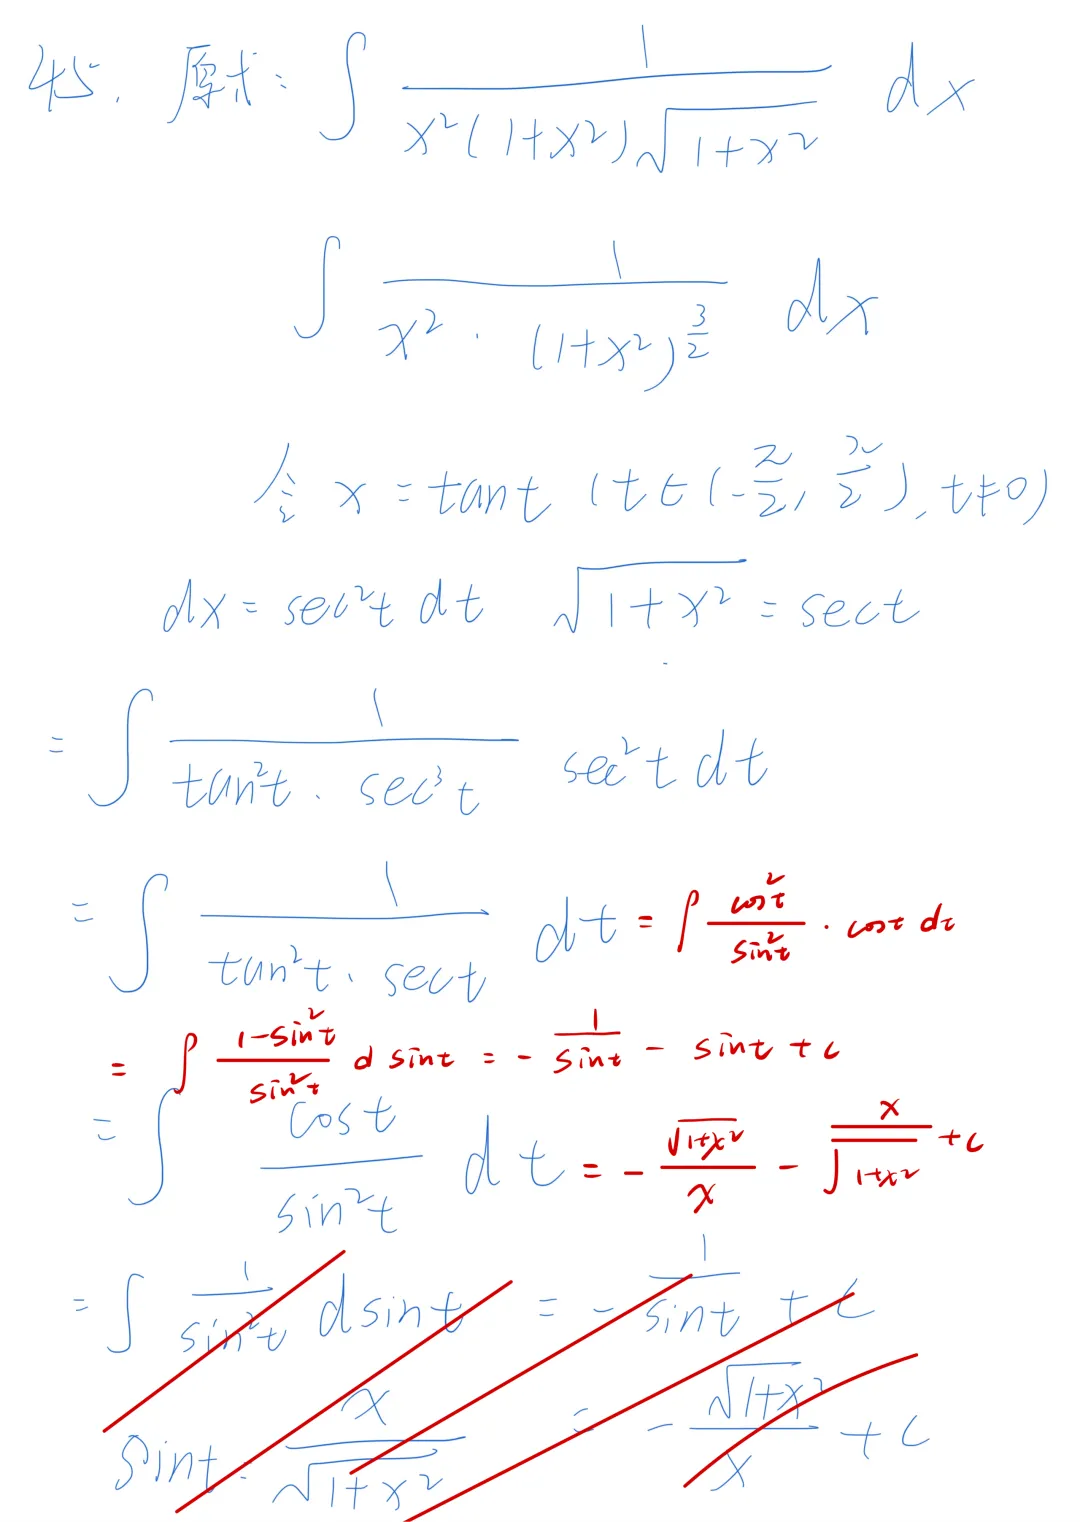 45. 原式: ∫ 1/(x²(1+x²)√(1+x²)) dx
∫ 1/(x² · (1+x²)^(3/2)) dx
令 x = tan t (t∈(-π/2, π/2), t≠0)
dx = sec²t dt √(1+x²) = sec t
= ∫ 1/(tan²t · sec³t) sec²t dt
= ∫ 1/(tan²t · sec t) dt = ∫ cos²t/sin²t · cos t dt
= ∫ (1-sin²t)/sin²t d sin t = - 1/sin t - sin t + c
= ∫ cos t/sin²t dt = - √(1+x²)/x - x/√(1+x²) + c
= ∫ 1/sin²t d sin t = - 1/sin t + c
sin t = x/√(1+x²) = - √(1+x²)/x + c